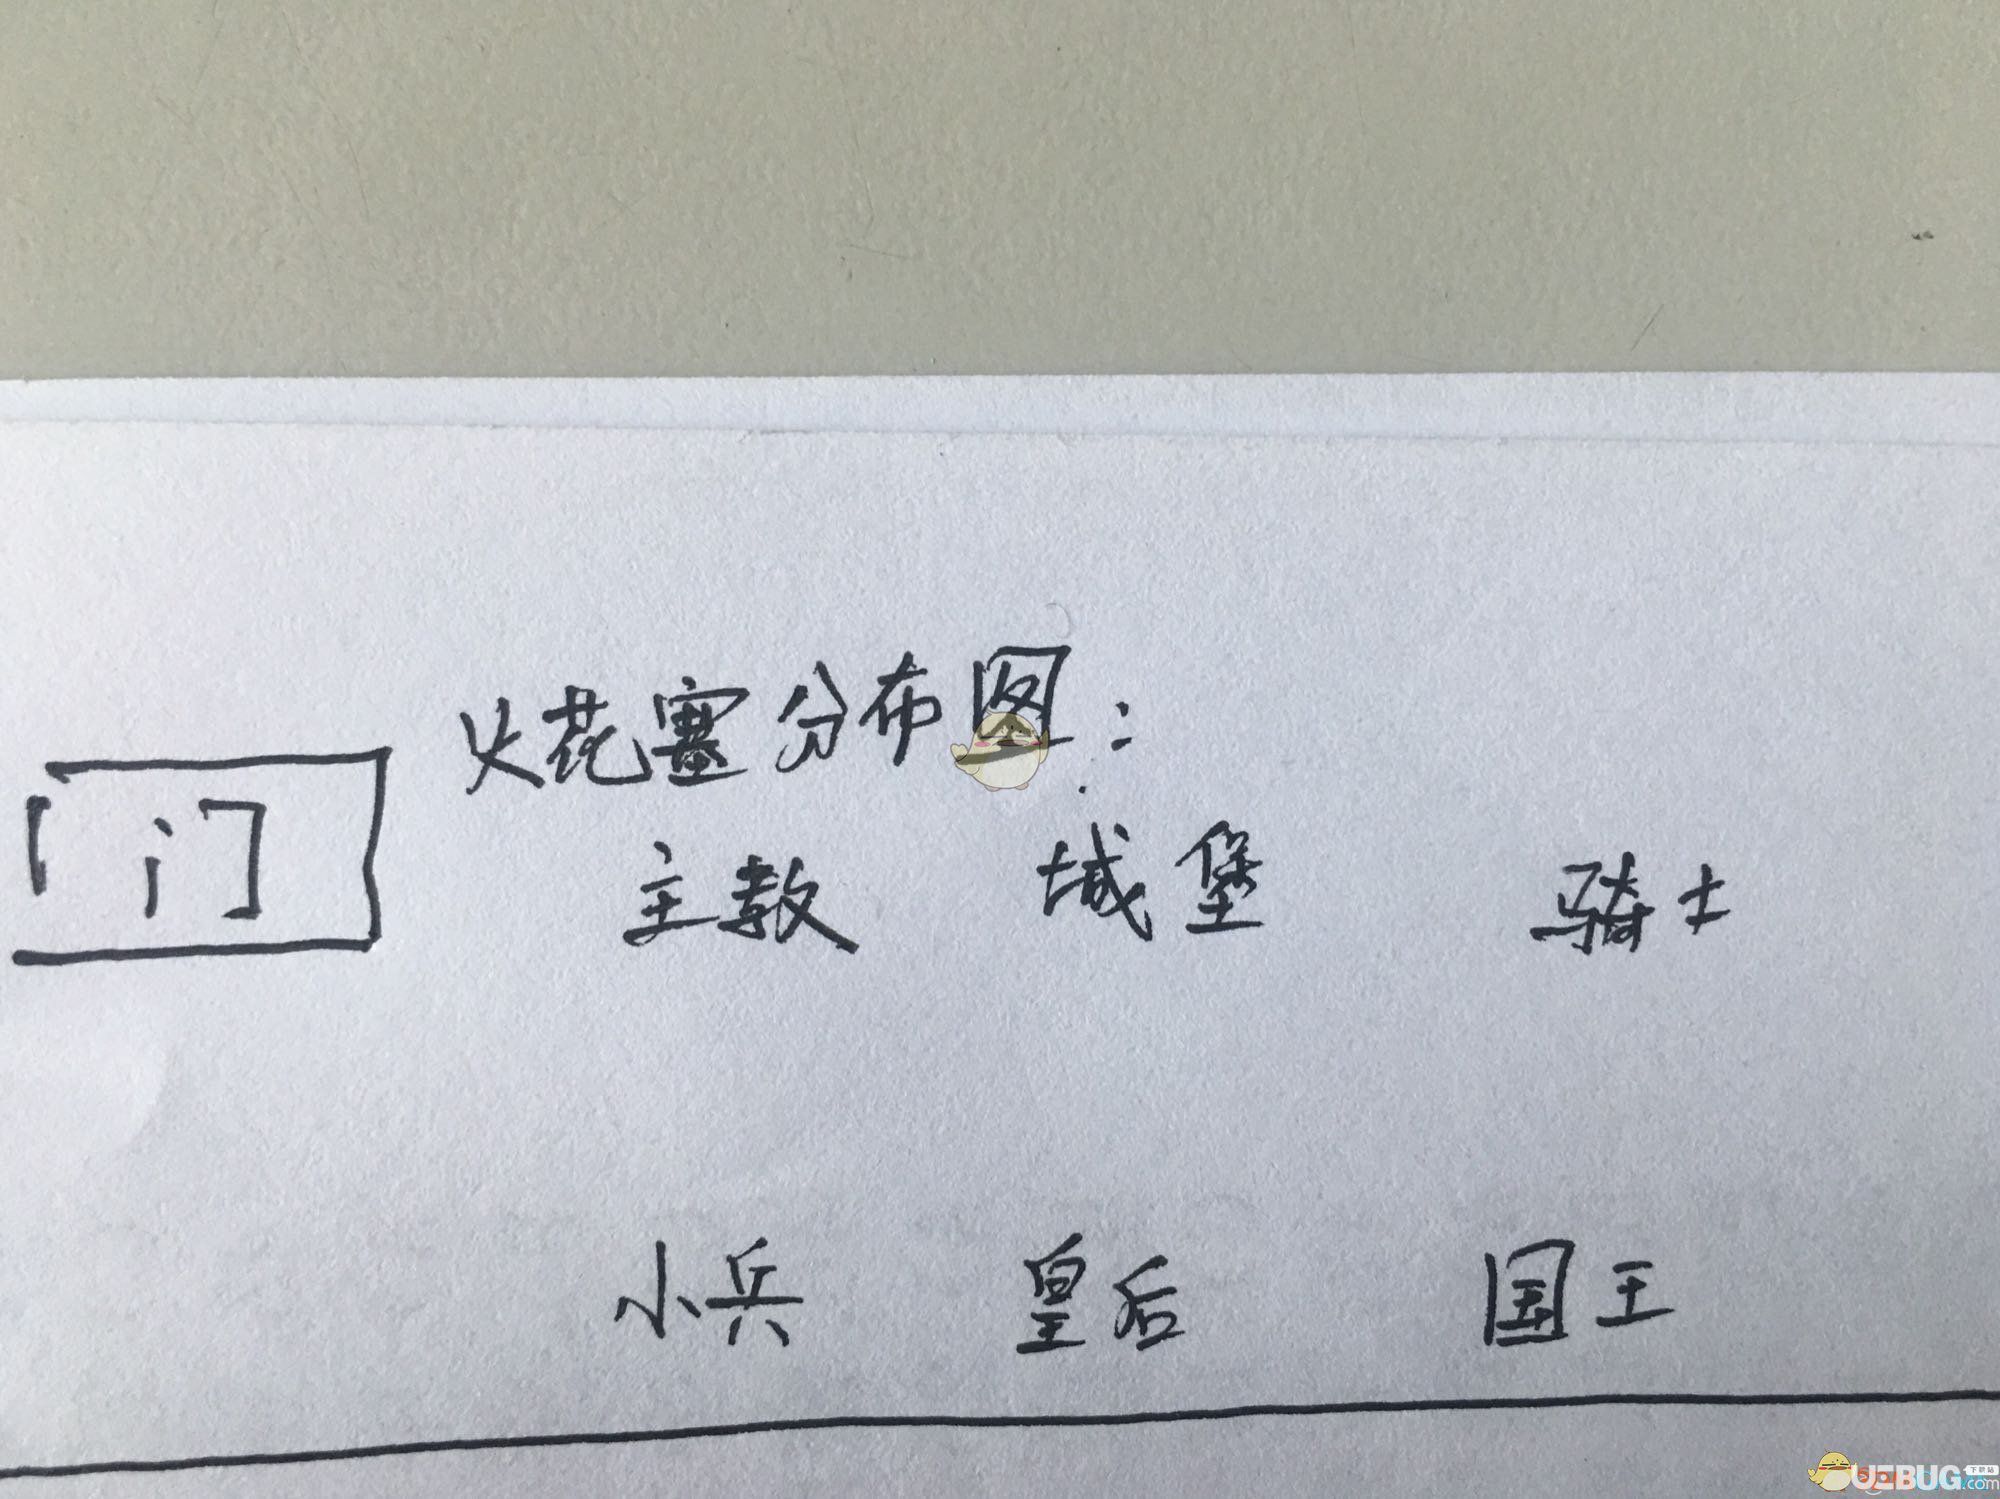 火花塞分布图：
门
主教 城堡 骑士
小兵 皇后 国王
UZBUG 下载站
.com